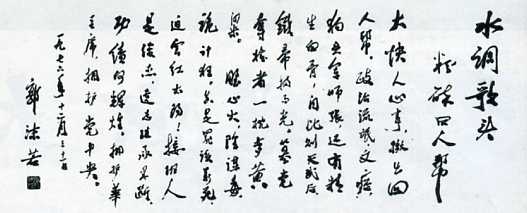 水调歌头
粉碎四人帮
大快人心事,揪出四
人帮。政治流氓文痞,
狗头军师张,还有精
生白骨,自比则天武后,
铁帚扫而光。篡党
夺权者,一枕梦黄
粱。 野心大,阴谋毒,
诡计狂。真是罪该万死,
迫害红太阳!接班人
是俊杰,遗志继承果断,
功绩何辉煌。拥护华
主席,拥护党中央。
一九七六年十二月
郭沫若